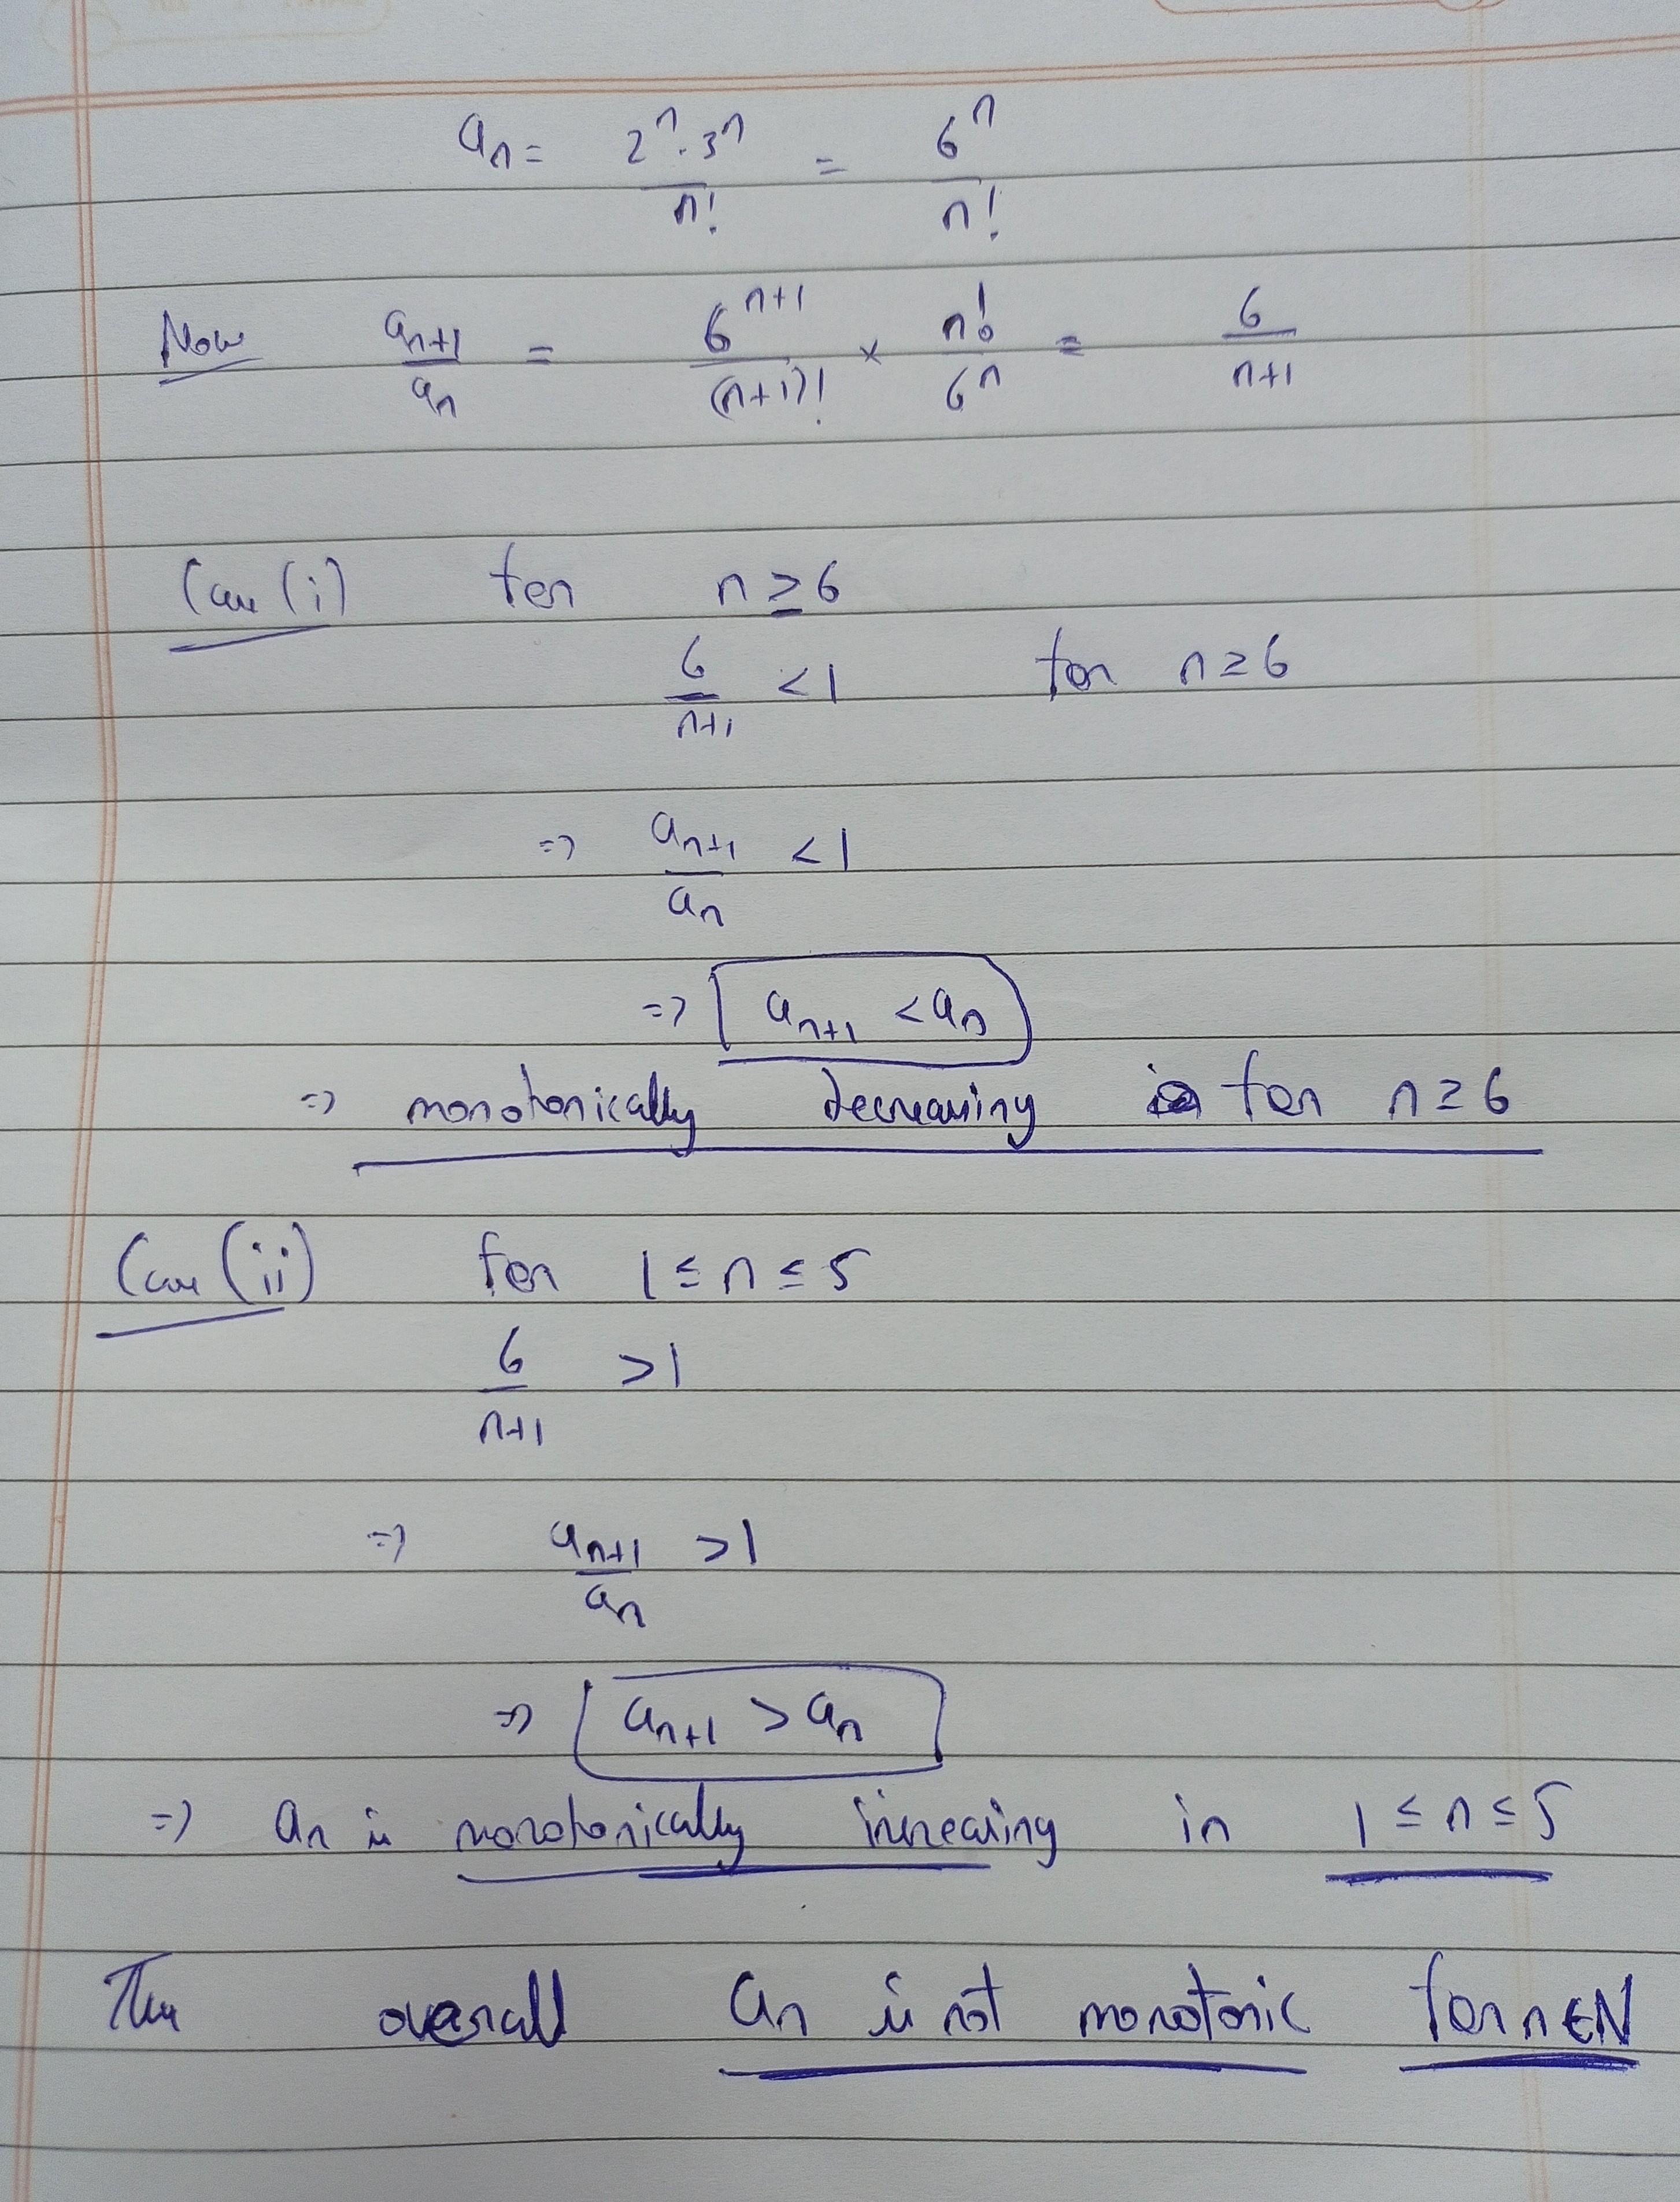 aₙ = 2ⁿ·3ⁿ / n! = 6ⁿ / n!
Now aₙ₊₁ / aₙ = 6ⁿ⁺¹ / (n+1)! × n! / 6ⁿ = 6 / n+1
Case (i) for n ≥ 6
6 / n+1 < 1 for n ≥ 6
⇒ aₙ₊₁ / aₙ < 1
⇒ aₙ₊₁ < aₙ
⇒ monotonically decreasing for n ≥ 6
Case (ii) for 1 ≤ n ≤ 5
6 / n+1 > 1
⇒ aₙ₊₁ / aₙ > 1
⇒ aₙ₊₁ > aₙ
⇒ aₙ is monotonically increasing in 1 ≤ n ≤ 5
Thus overall aₙ is not monotonic for n ∈ N